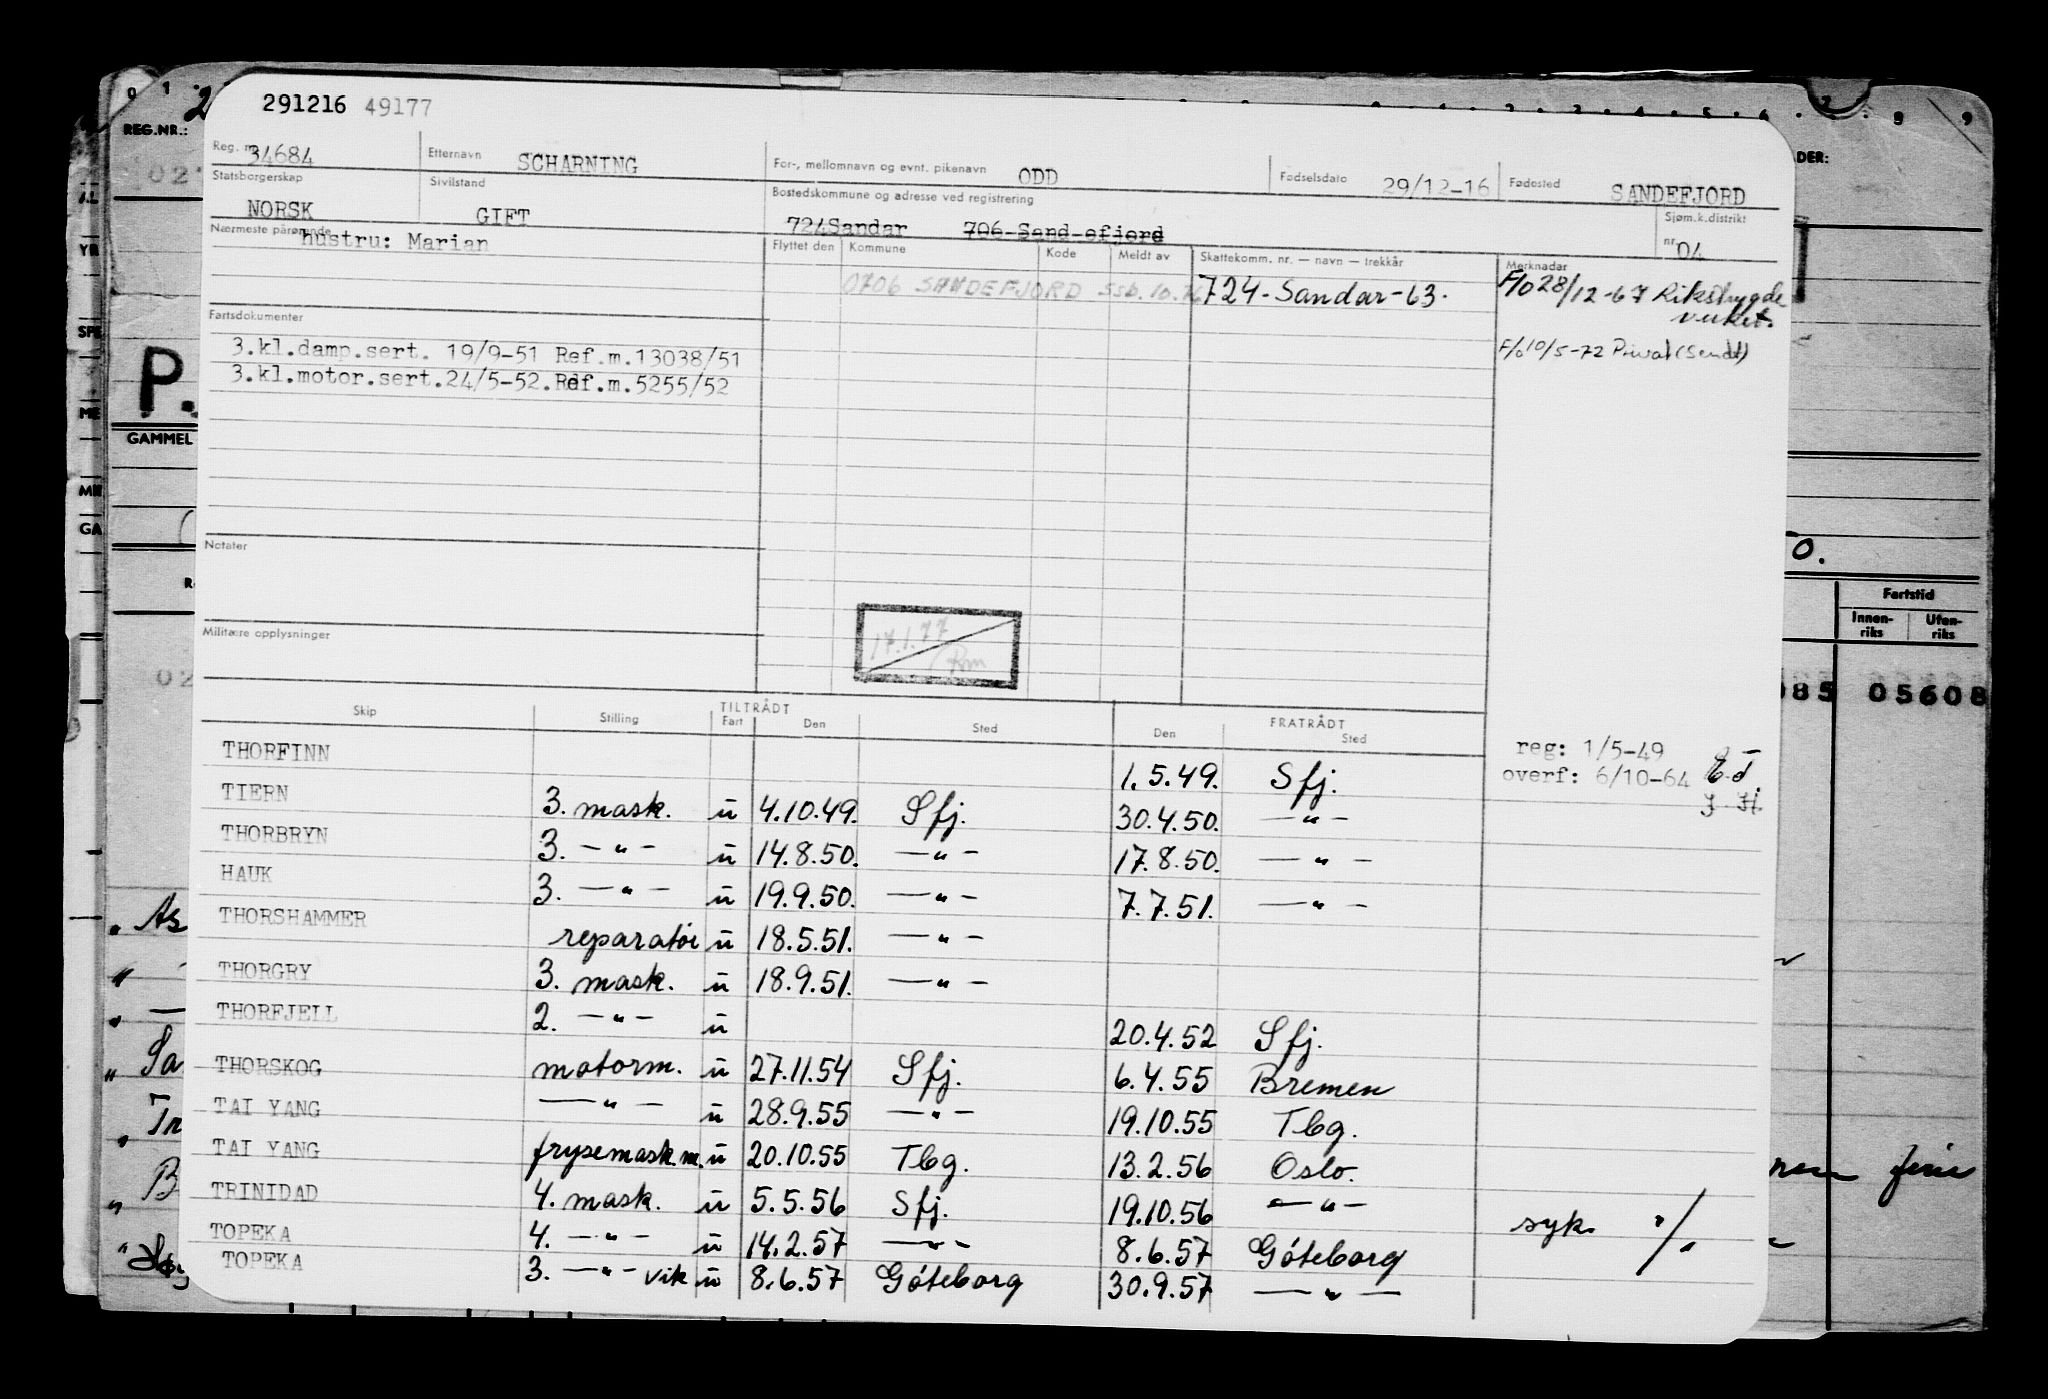 291216 49177
Reg. nr. 34684 Etternavn SCHARNING For-, mellomnavn og evnt. pikenavn ODD Fødselsdato 29/12-16 Fødested SANDEFJORD
Statsborgerskap NORSK Sivilstand GIFT Bostedskommune og adresse ved registrering 724Sandar 706-Sand-efjord Sjøm.k.distrikt nr. 04
Nærmeste pårørende hustru: Marian Flyttet den Kommune Kode Meldt av Skattekomm. nr. — navn — trekkår Merknader
0706 SANDEFJORD SSB.10.76 724-Sandar-63. F/o 28/12-67 Rikstrygde
verket.
Fartsdokumenter
3.kl.damp.sert. 19/9-51 Ref.m.13038/51 F/o 10/5-72 Privat (Sendt)
3.kl.motor.sert.24/5-52.Ref.m.5255/52
Notater
Militære opplysninger
17.1.77
Rm
Skip Stilling TILTRÅDT Fart Den Sted FRATRÅDT Den Sted
THORFINN 1.5.49. Sfj. reg: 1/5-49
overf: 6/10-64
TIERN 3. mask. u 4.10.49. Sfj. 30.4.50. —"—
THORBRYN 3. —"— u 14.8.50. —"— 17.8.50. —"—
HAUK 3. —"— u 19.9.50. —"— 7.7.51. —"—
THORSHAMMER reparatør u 18.5.51. —"—
THORGRY 3. mask. u 18.9.51. —"—
THORFJELL 2. —"— u 20.4.52 Sfj.
THORSKOG motorm. u 27.11.54 Sfj. 6.4.55 Bremen
TAI YANG —"— u 28.9.55 —"— 19.10.55 Tbg.
TAI YANG frysemask.m. u 20.10.55 Tbg. 13.2.56 Oslo.
TRINIDAD 4. mask. u 5.5.56 Sfj. 19.10.56 —"— syk.
TOPEKA 4. —"— u 14.2.57 —"— 8.6.57 Göteborg
TOPEKA 3. —"— vik u 8.6.57 Göteborg 30.9.57 —"—
REG.NR.:
P.
GAMMEL
DER:
Fartstid
Innen-
riks
Uten-
riks
085 05608